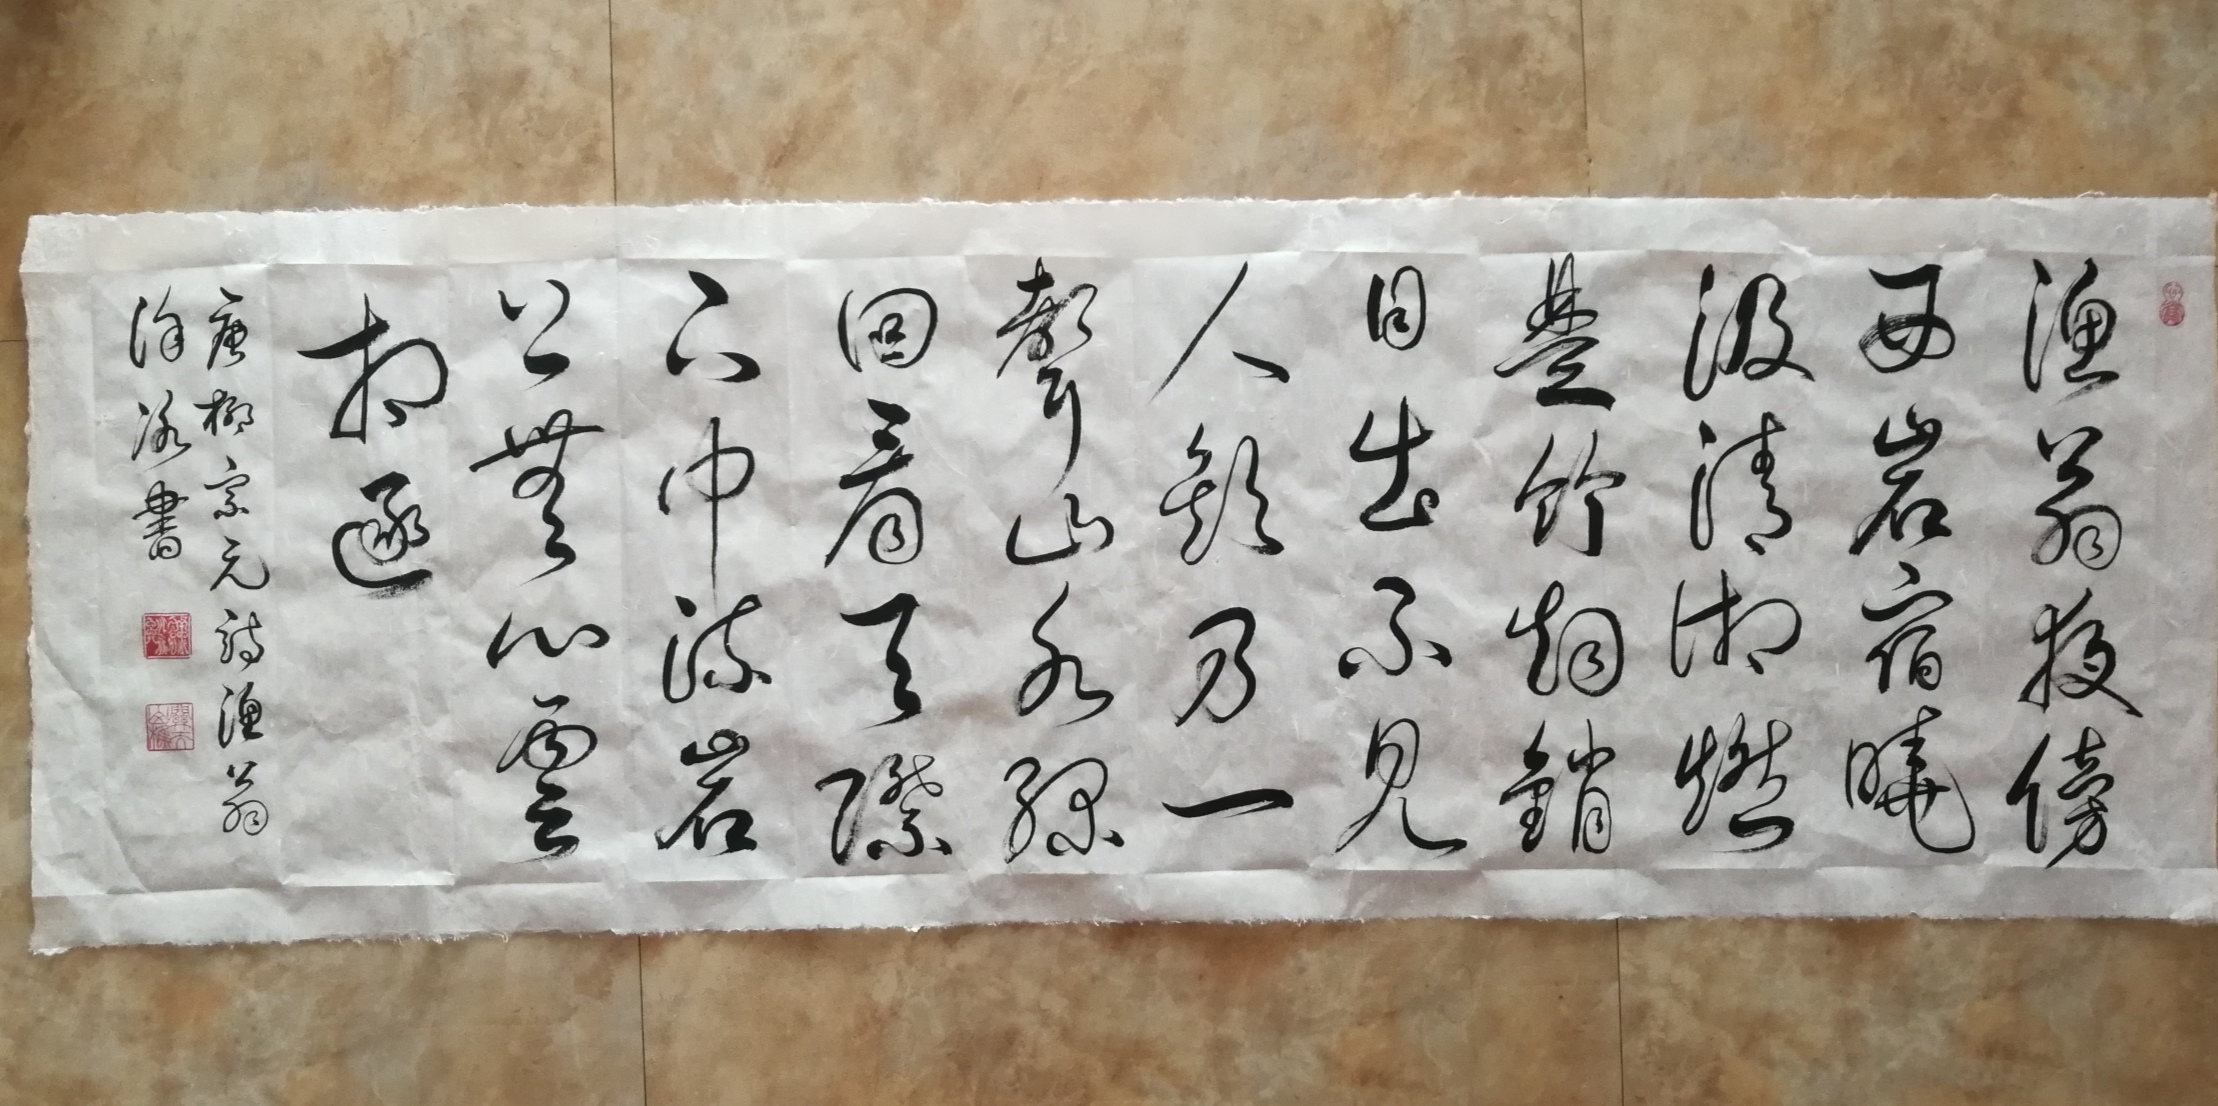 漁翁夜傍
西岩宿曉
汲清湘燃
楚竹煙銷
日出不見
人欸乃一
聲山水緑
回看天際
下中流岩
上無心雲
相逐
唐柳宗元詩漁翁
徐泳書